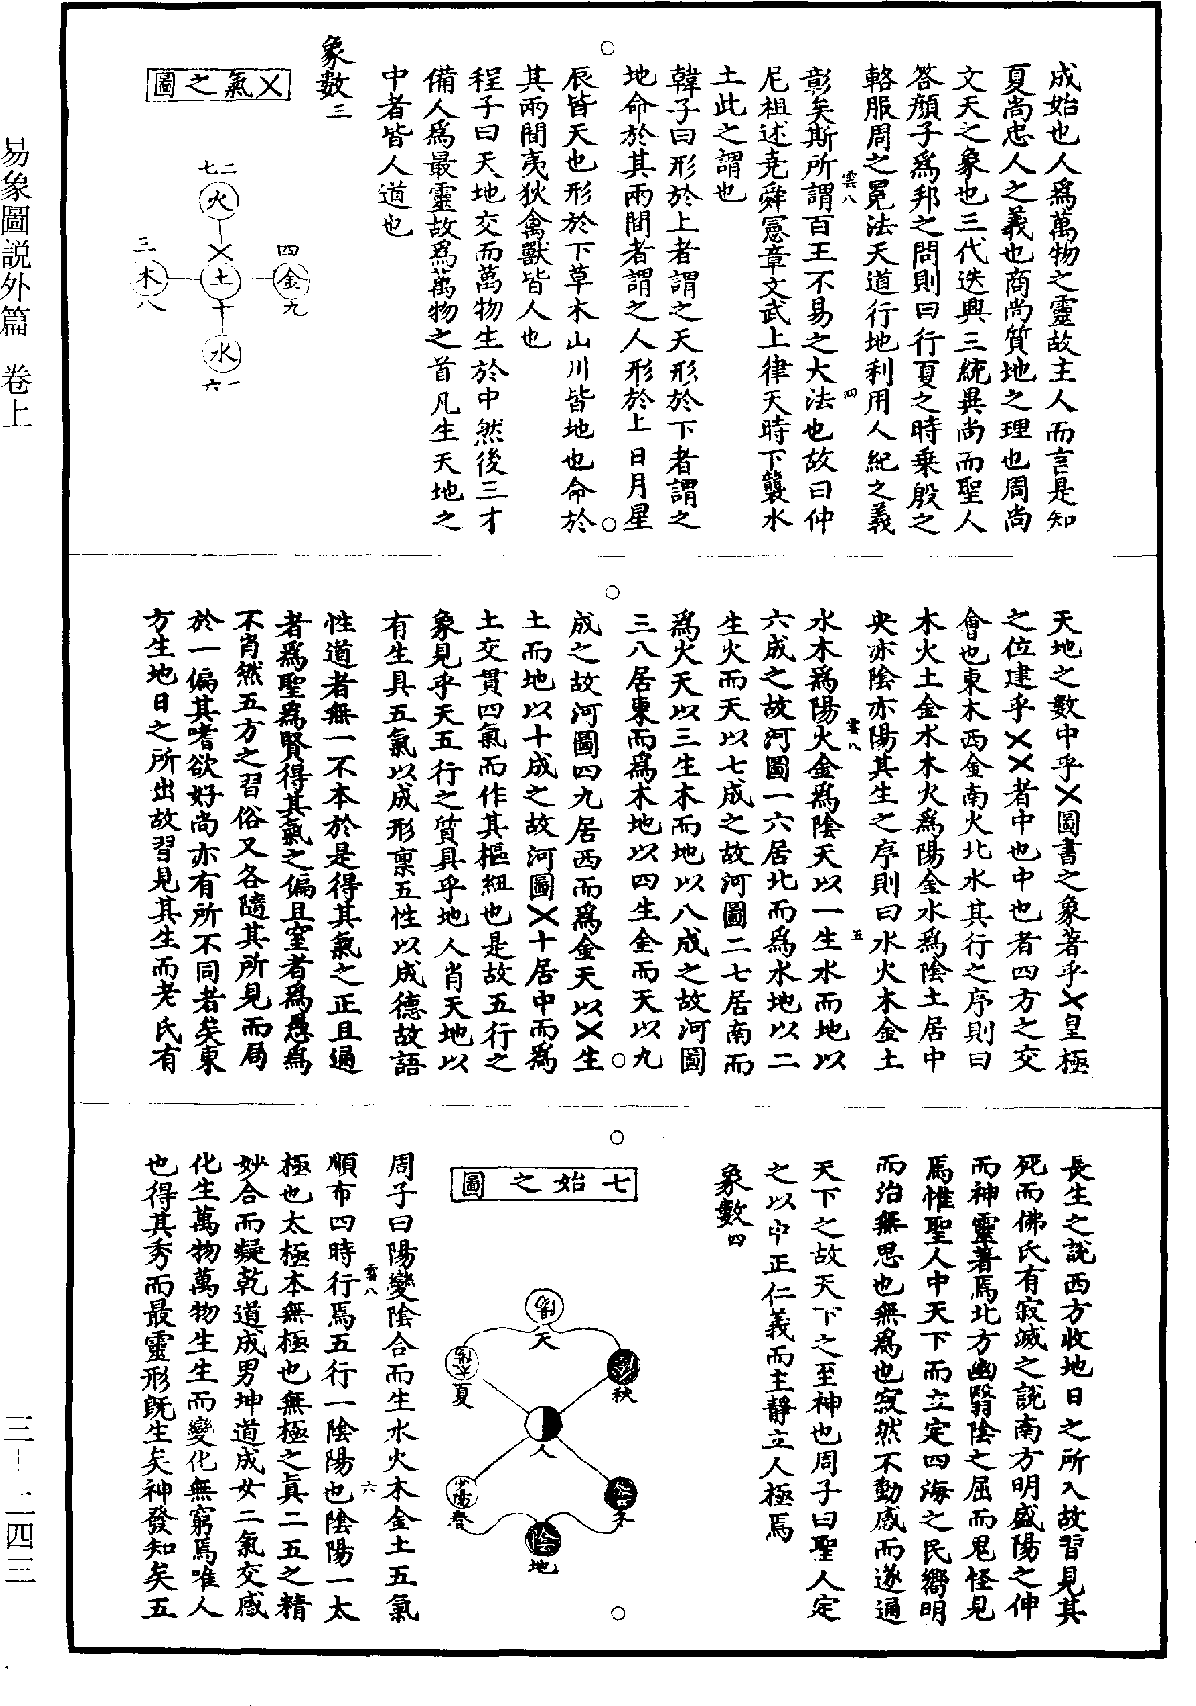 易象圖説外篇　卷上
三—二四三
成始也人爲萬物之靈故主人而言是知
夏尚忠人之義也商尚質地之理也周尚
文天之象也三代迭興三統異尚而聖人
答顔子爲邦之問則曰行夏之時乗殷之
輅服周之冕法天道行地利用人紀之義
雲八
四
彰矣斯所謂百王不易之大法也故曰仲
尼祖述堯舜憲章文武上律天時下襲水
土此之謂也
韓子曰形於上者謂之天形於下者謂之
地命於其兩間者謂之人形於上日月星
辰皆天也形於下草木山川皆地也命於
其兩間夷狄禽獸皆人也
程子曰天地交而萬物生於中然後三才
備人爲最靈故爲萬物之首凡生天地之
中者皆人道也
象數三
㐅氣之圖
二七
火
㐅
三
木
八
土
四
金
九
十
水
一六
天地之數中乎㐅圖書之象著乎㐅皇極
之位建乎㐅㐅者中也中也者四方之交
會也東木西金南火北水其行之序則曰
木火土金水木火爲陽金水爲陰土居中
央亦陰亦陽其生之序則曰水火木金土
雲八
五
水木爲陽火金爲陰天以一生水而地以
六成之故河圖一六居北而爲水地以二
生火而天以七成之故河圖二七居南而
爲火天以三生木而地以八成之故河圖
三八居東而爲木地以四生金而天以九
成之故河圖四九居西而爲金天以㐅生
土而地以十成之故河圖㐅十居中而爲
土交貫四氣而作其樞紐也是故五行之
象見乎天五行之質具乎地人肖天地以
有生具五氣以成形稟五性以成德故語
性道者無一不本於是得其氣之正且通
者爲聖爲賢得其氣之偏且窒者爲愚爲
不肖然五方之習俗又各隨其所見而局
於一偏其嗜欲好尚亦有所不同者矣東
方生地日之所出故習見其生而老氏有
長生之説西方收地日之所入故習見其
死而佛氏有寂滅之説南方明盛陽之伸
而神靈著焉北方幽翳陰之屈而鬼怪見
焉惟聖人中天下而立定四海之民嚮明
而治無思也無爲也寂然不動感而遂通
天下之故天下之至神也周子曰聖人定
之以中正仁義而主靜立人極焉
象數四
七始之圖
天
夏
秋
人
春
冬
陰
地
周子曰陽變陰合而生水火木金土五氣
順布四時行焉五行一陰陽也陰陽一太
雲八
六
極也太極本無極也無極之眞二五之精
妙合而凝乾道成男坤道成女二氣交感
化生萬物萬物生生而變化無窮焉唯人
也得其秀而最靈形既生矣神發知矣五